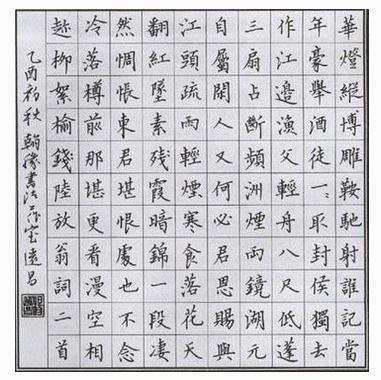 華燈縱博雕鞍馳射誰記當
年豪舉酒徒一〻取封侯獨去
作江邊漁父輕舟八尺低蓬
三扇占斷頻洲煙雨鏡湖元
自屬閑人又何必君恩賜與
江頭疏雨輕煙寒食落花天
翻紅墜素殘霞暗錦一段淒
然惆悵東君堪恨處也不念
冷落樽前那堪更看漫空相
趂柳絮榆錢陸放翁詞二首
乙酉初秋翰勝書法工作室遠昌